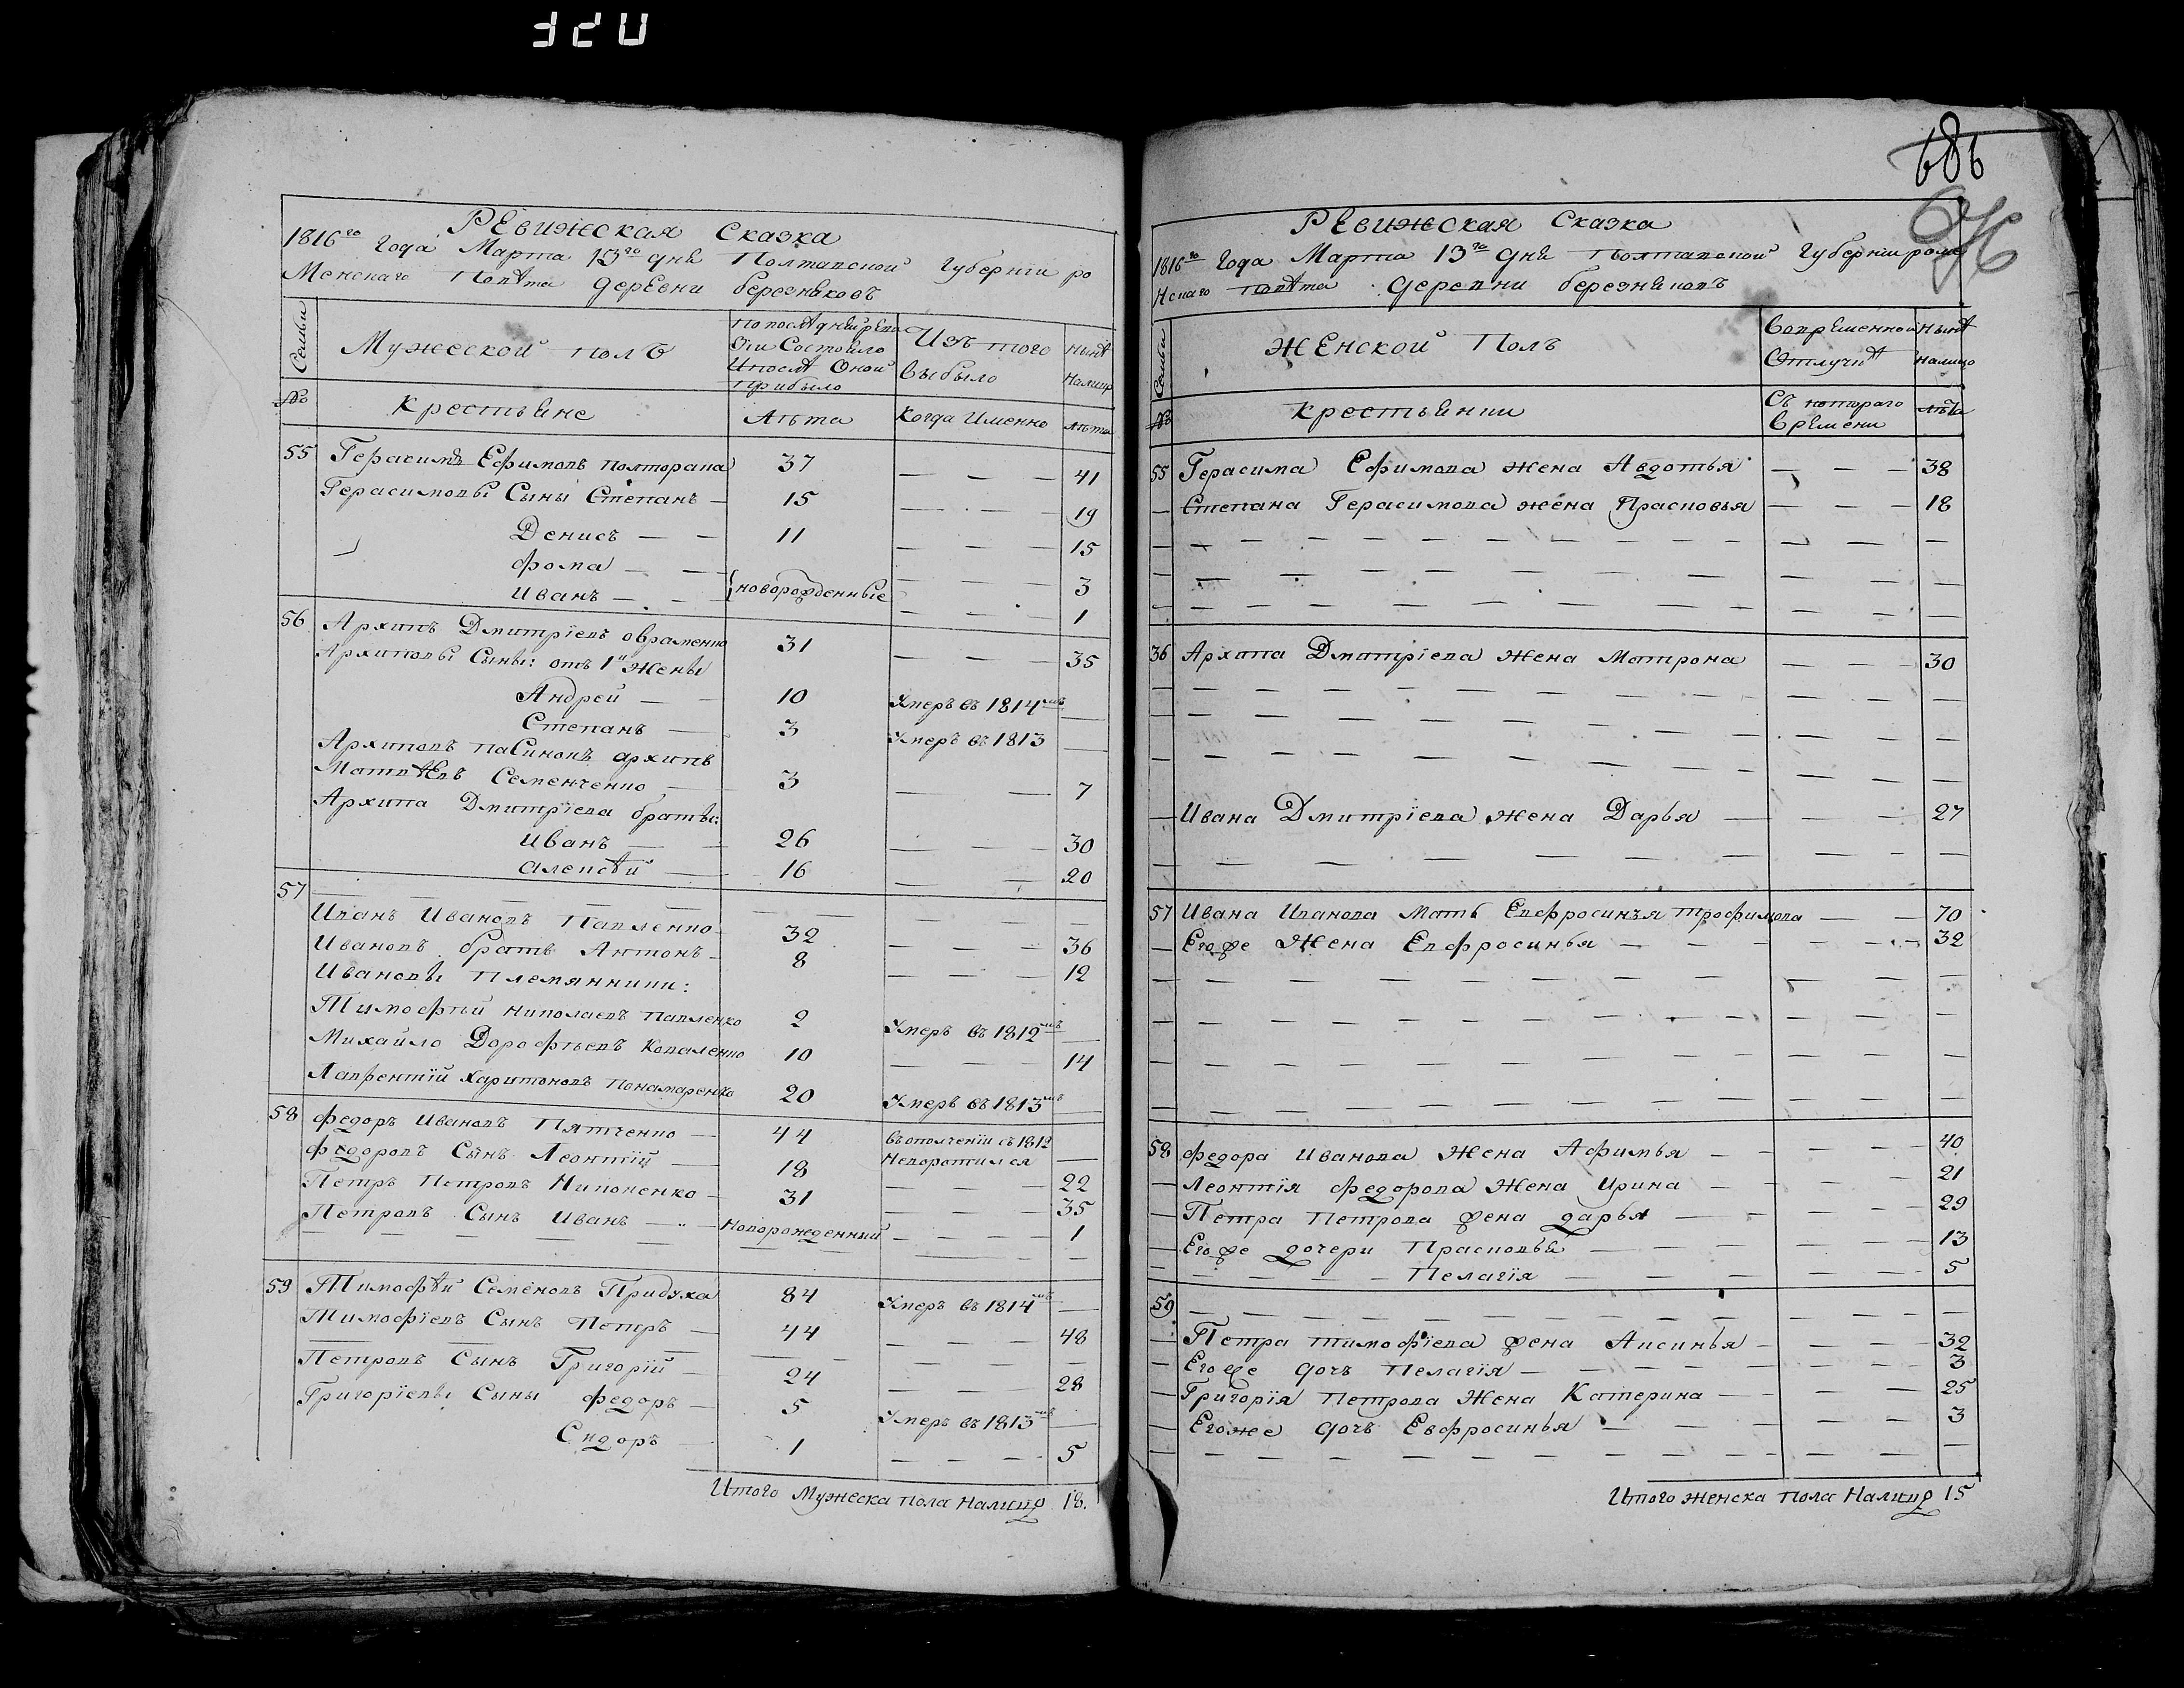 320
Ревижская Сказка
1816го Года Марта 13го дня Полтавской Губернїи ро
Менскаго Повѣта деревни березняковъ
Семьи
Мужеской полъ
По последней реви
зїи Состояло
Ипослѣ Оной
прибыло
Изъ того
выбыло
нынѣ
налицо
№
крестьяне
Лѣта
Когда Именно
лѣта
55 Герасимъ Ефимовъ полторапа 37 — — — 41
Герасимовы Сыны Степанъ — 15 — — — 19
Денисъ — — 11 — — — 15
фома — — — — — 3
иванъ — — — {новорожденные — — — 1
56 Архипъ Дмитрїевъ овраменко 31 — — — 35
Архиповы Сыны: отъ 1й Жены
Андрей — — 10 Умеръ въ 1814мъ —
Степанъ — 3 Умеръ въ 1813 —
Архиповъ пасинокъ архипъ
Матвѣевъ Семенченко — 3 — — 7
Архипа Дмитрїева братья:
иванъ — — 26 — — — 30
алексѣй — 16 — — 20
57 — — — — — — —
Иванъ Ивановъ Павленко 32 — — — 36
Ивановъ братъ Антонъ — 8 — — — 12
Ивановы племянники:
Тимофѣй николаевъ павленко 2 Умеръ въ 1812мъ —
Михайло Дорофѣевъ Коваленко 10 — — — 14
Лаврентїй харитоновъ понамаренко 20 Умеръ въ 1813мъ —
58 федоръ ивановъ Пятченко — 44 въ ополченїи съ 1812
неворотился —
федоровъ Сынъ Леонтїй — 18 — — — 22
Петръ Петровъ Никоненко — 31 — — — 35
Петровъ Сынъ Иванъ — — новорожденный — — — 1
— — — — — — — —
59 Тимофѣй Семеновъ Придуха 84 Умеръ въ 1814мъ —
Тимофїевъ Сынъ Петръ — 44 — — — 48
Петровъ Сынъ Григорїй — 24 — — 28
Григорїевы Сыны федоръ — 5 Умеръ въ 1813мъ —
Сидоръ — 1 — — — 5
Итого Мужеска пола Налицо 18.
686
Ревижская Сказка
1816го Года Марта 13го дня Полтавской Губернїи роме
Нскаго повѣта деревни березняковъ
Семьи
Женской Полъ
Вовременной
Отлучкѣ
нынѣ
налицо
№
крестьянки
Съ котораго
времени
лѣта
55 Герасима Ефимова жена Авдотья — — — 38
— Степана Герасимова жена Прасковья — — — 18
— — — — — — — —
— — — — — — — —
— — — — — — — —
36 Архипа Дмитрїева жена Матрона — — — 30
— — — — — — — —
— — — — — — — —
— — — — — — — —
— Ивана Дмитрїева жена Дарья — — — 27
— — — — — — — —
57 Ивана Иванова мать Евфросинья трофимова — — 70
— Егоже Жена Евфросинья — — — 32
— — — — — — — —
— — — — — — — —
— — — — — — — —
— — — — — — — —
58 федора иванова жена Афимья — — — 40
— Леонтїя федорова жена ирина — — — 21
— Петра Петрова жена дарья — — — 29
— Егоже дочери Прасковья — — — 13
— — — — Пелагїя — — — 5
59 — — — — — — — —
— Петра тимофїева жена Аксинья — — — 32
— Егоже дочь Пелагїя — — — 3
— Григорїя Петрова Жена Катерина — — — 25
— Егоже дочь Евфросинья — — — 3
— — — — — — — —
Итого женска пола Налицо 15